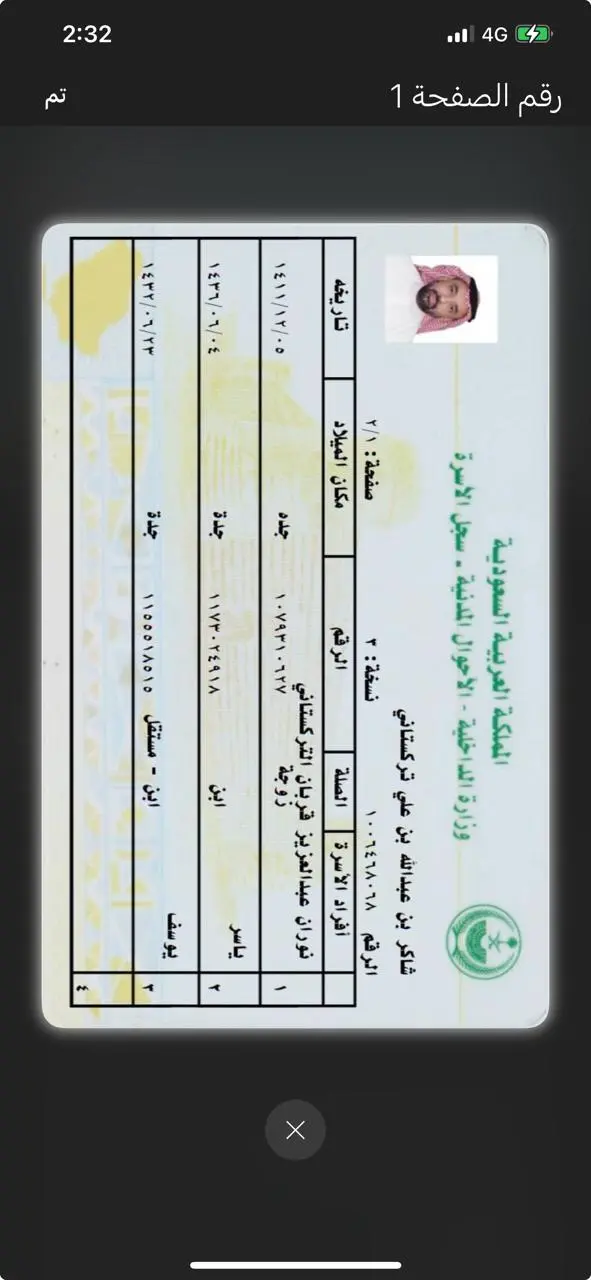 2:32
4G
تم
رقم الصفحة 1
المملكة العربية السعودية
وزارة الداخلية - الأحوال المدنية - سجل الأسرة
شاكر بن عبدالله بن علي تركستاني
الرقم ١٠٠٦٤٦٨٠٦٨ نسخة: ٣ صفحة: ٢/١
أفراد الأسرة الصلة الرقم مكان الميلاد تاريخه
١ نوران عبدالعزيز قربان التركستاني زوجة ١٠٧٩٣١٠٦٢٧ جده ١٤١١/١٢/٠٥
٢ ياسر ابن ١١٧٣٠٢٤٩١٨ جدة ١٤٣٦/٠٦/٠٤
٣ يوسف ابن - مستقل ١١٥٥٥١٨٥١٥ جدة ١٤٣٢/٠٦/٢٣
٤